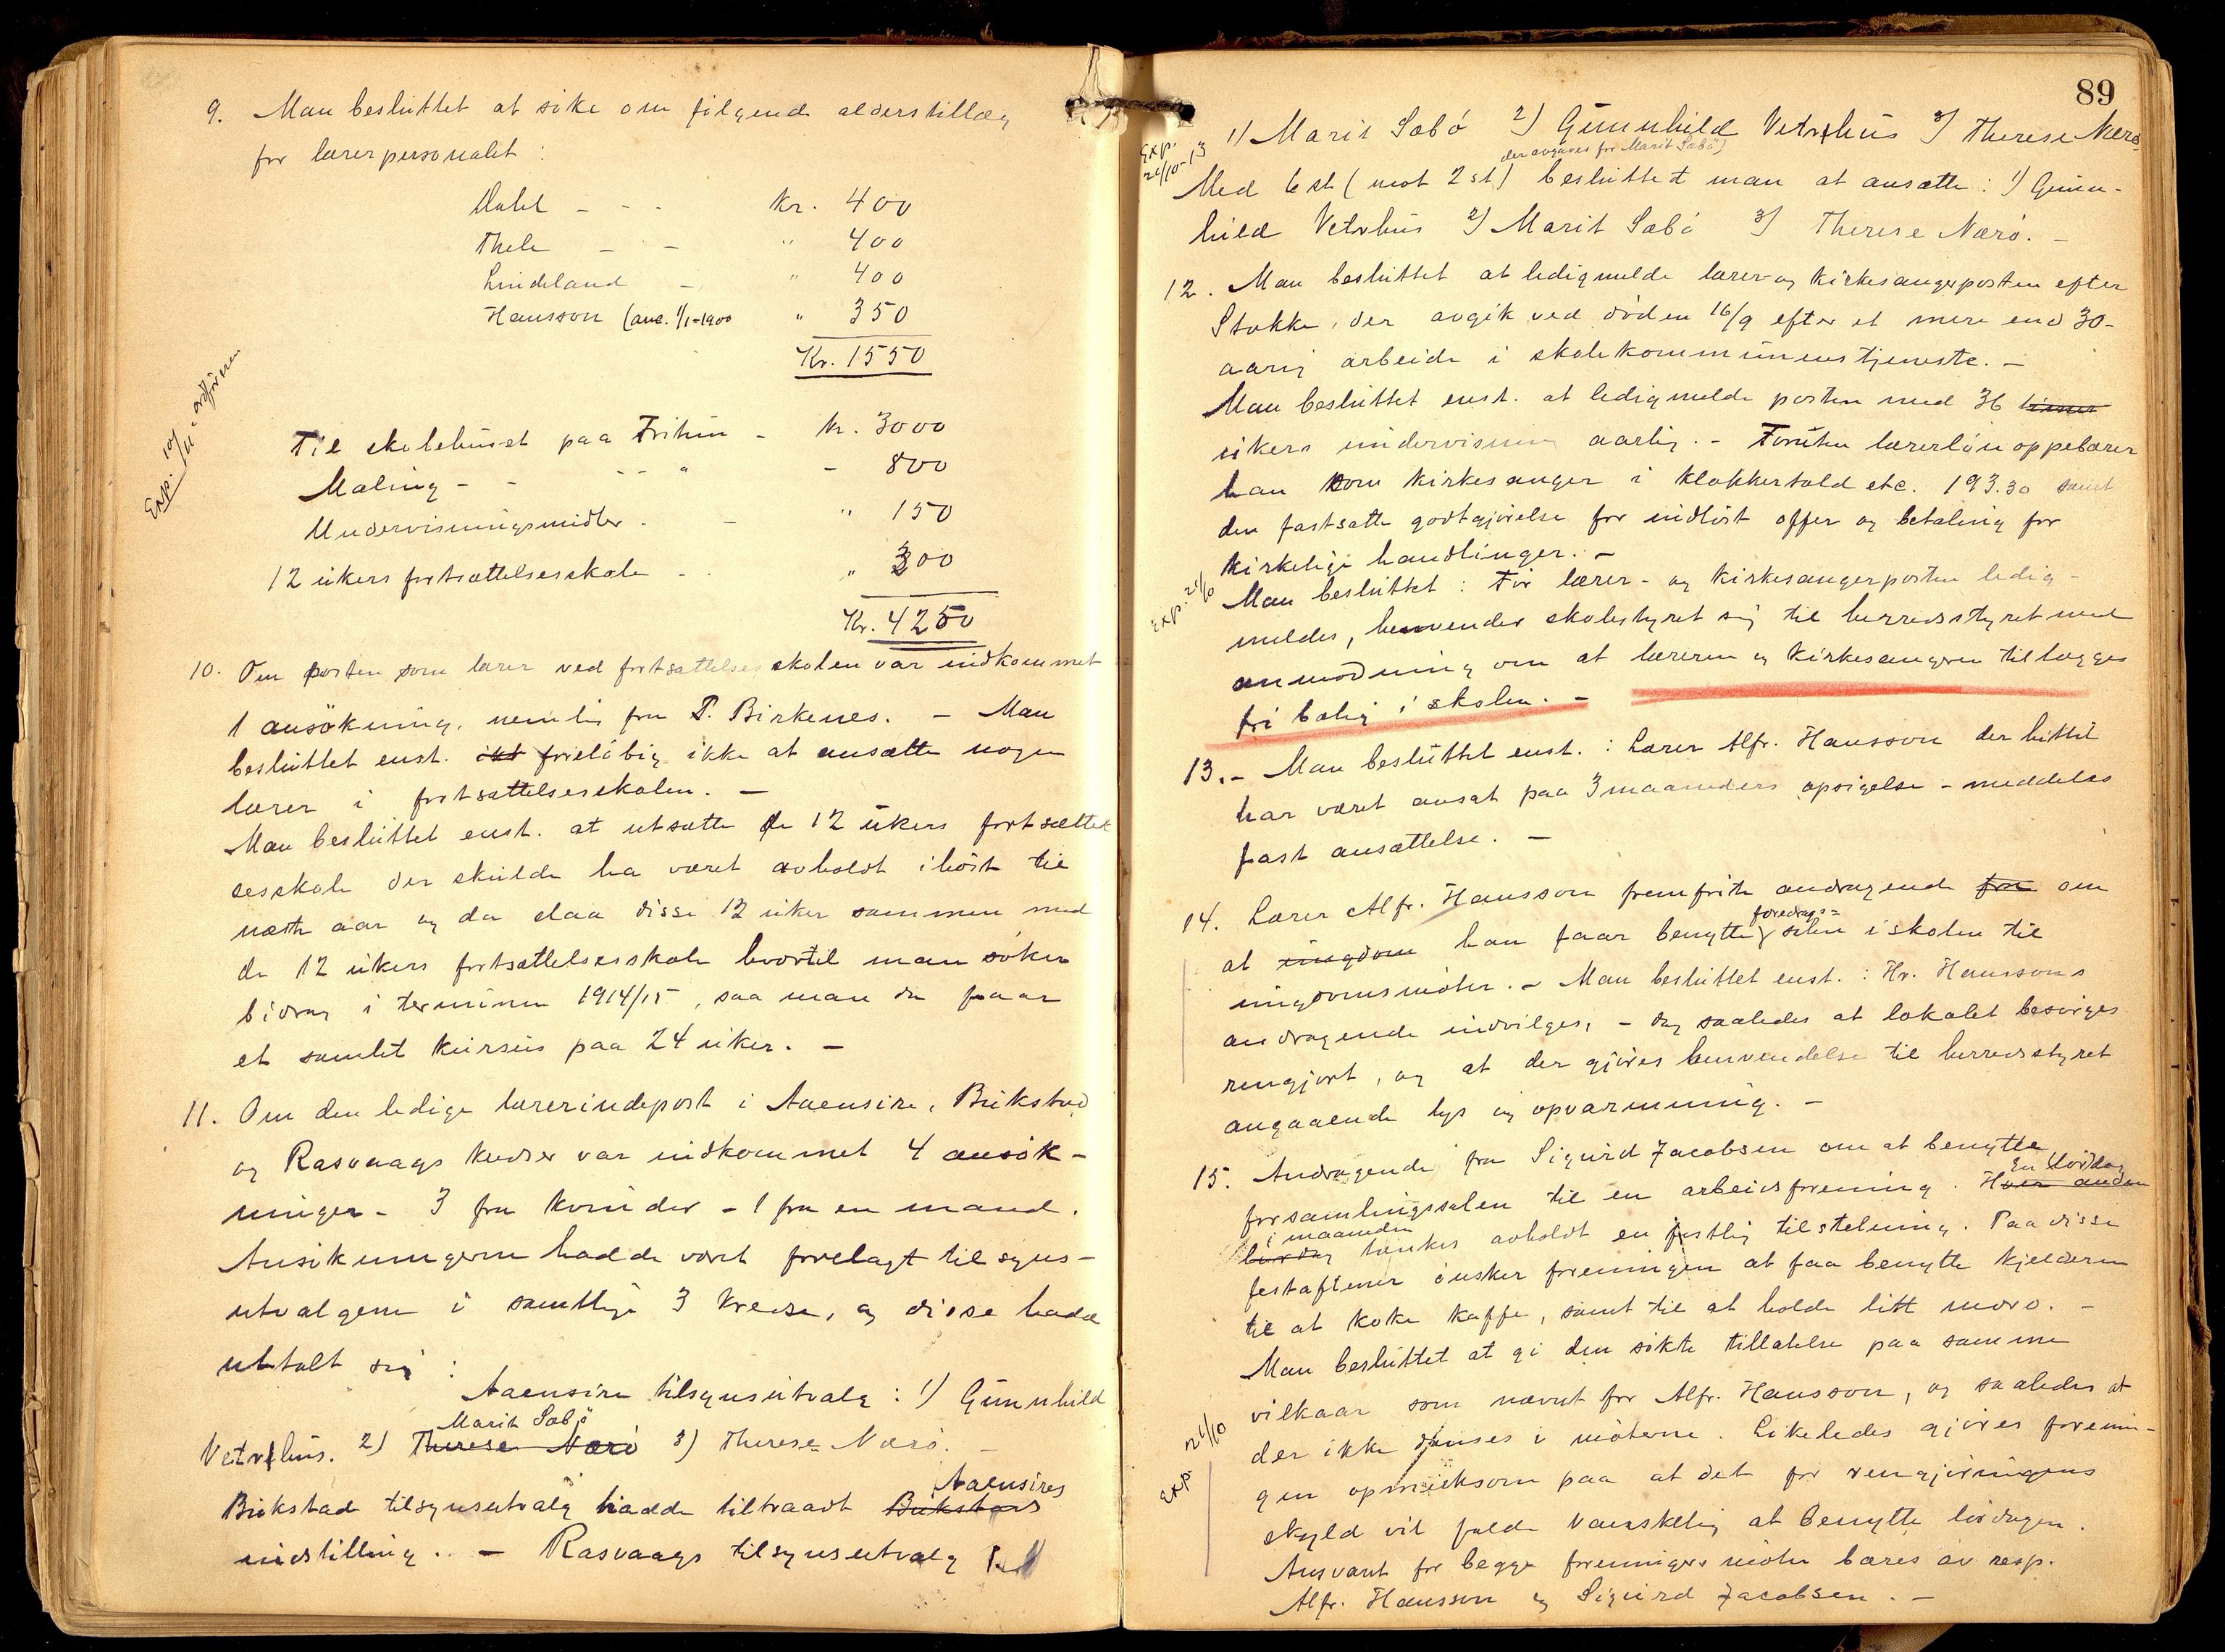 9. Man besluttet at söke om fölgende alderstillæg
for lærerpersonalet:
Dahl - - - Kr. 400
Thele - - " 400
Lindeland - " 400
Hansson (anc. 1/1-1900 " 350
Kr. 1550
Exp. 10/11 - ordføreren
Til skolehuset paa Frihun - Kr. 3000
Maling - - - - " - 800
Undervisningsmidler. - " 150
12 ukers fortsættelsesskole - . " 300
Kr. 4250
10. Om posten som lærer ved fortsættelsesskolen var indkommet
1 ansökning, nemlig fra P. Birkenes. - Man
besluttet enst. ikk foreløbig ikke at ansætte nogen
lærer i fortsættelsesskolen. -
Man besluttet enst. at utsætte de 12 ukers fortsættel
sesskole der skulde ha været avholdt ihöst til
næste aar og da slaa disse 12 uker sammen med
de 12 ukers fortsættelsesskole hvortil man söker
bidrag i terminen 1914/15, saa man da faar
et samlet kursus paa 24 uker. -
11. Om den ledige lærerindepost i Aaensire, Bukstad
og Rasvaags kredser var indkommet 4 ansök-
ninger - 3 fra kvinder - 1 fra en mand.
Ansökningerne hadde været forelagt tilsyns-
utvalgene i samtlige 3 kredse, og disse hadde
uttalt sig:
Aaensire tilsynsutvalg: 1) Gunnhild
Marit Sæbö
Vetrhus. 2) Therese Nærö 3) Therese Nærö. -
Aaensires
Bukstad tilsynsutvalg hadde tiltraadt Bukstads
indstilling. - Rasvaags tilsynsutvalg
89
Exp. 21/10-13
1) Marit Sæbö 2) Gunnhild Vetrhus 3) Therese Nærö
der avgaves for Marit Sæbö)
Med 6 st (mot 2 st) besluttet man at ansætte: 1) Gunn-
hild Vetrhus 2) Marit Sæbö 3) Therese Nærö. -
12. Man besluttet at ledigmelde lærer- og kirkesangerposten efter
Stokke, der avgik ved döden 16/9 efter et mere end 30-
aarig arbeide i skolekommunens tjeneste. -
Man besluttet enst. at ledigmelde posten med 36 timer
ukers undervisning aarlig. - Foruten lærerlön oppebærer
han som kirkesanger i klokkertold etc. 193.30 samt
den fastsatte godtgjörelse for indlöst offer og betaling for
kirkelige handlinger. -
Exp. 21/10
Man besluttet: För lærer- og kirkesangerposten ledig-
meldes, henvender skolestyret sig til herredsstyret med
anmodning om at læreren og kirkesangeren tillægges
fri bolig i skolen. -
13. - Man besluttet enst.: Lærer Alfr. Hansson der hittil
har været ansat paa 3 maaneders opsigelse - meddeles
fast ansættelse. -
14. Lærer Alfr. Hansson fremförte andragende fra om
foredrags=
at ungdom han faar benytte salen i skolen til
ungdomsmöter. - Man besluttet enst.: Hr. Hanssons
andragende indvilges, - dog saaledes at lokalet besörges
rengjort, og at der gjöres henvendelse til herredsstyret
angaaende lys og opvarmning. -
15. Andragende fra Sigurd Jacobsen om at benytte
En lördag
forsamlingssalen til en arbeidsforening. Hver anden
i maaneden
lördag tænkes avholdt en festlig tilstelning. Paa disse
festaftener önsker foreningen at faa benytte kjelderen
til at koke kaffe, samt til at holde litt moro. -
Man besluttet at gi den sökte tillatelse paa samme
vilkaar som nævnt for Alfr. Hansson, og saaledes at
Exp. 21/10
der ikke danses i möterne. Likeledes gjöres forenin-
gen opmerksom paa at det for rengjöringens
skyld vil falde vanskelig at benytte lördagen.
Ansvaret for begge foreningers möter bæres av resp.
Alfr. Hansson og Sigurd Jacobsen. -